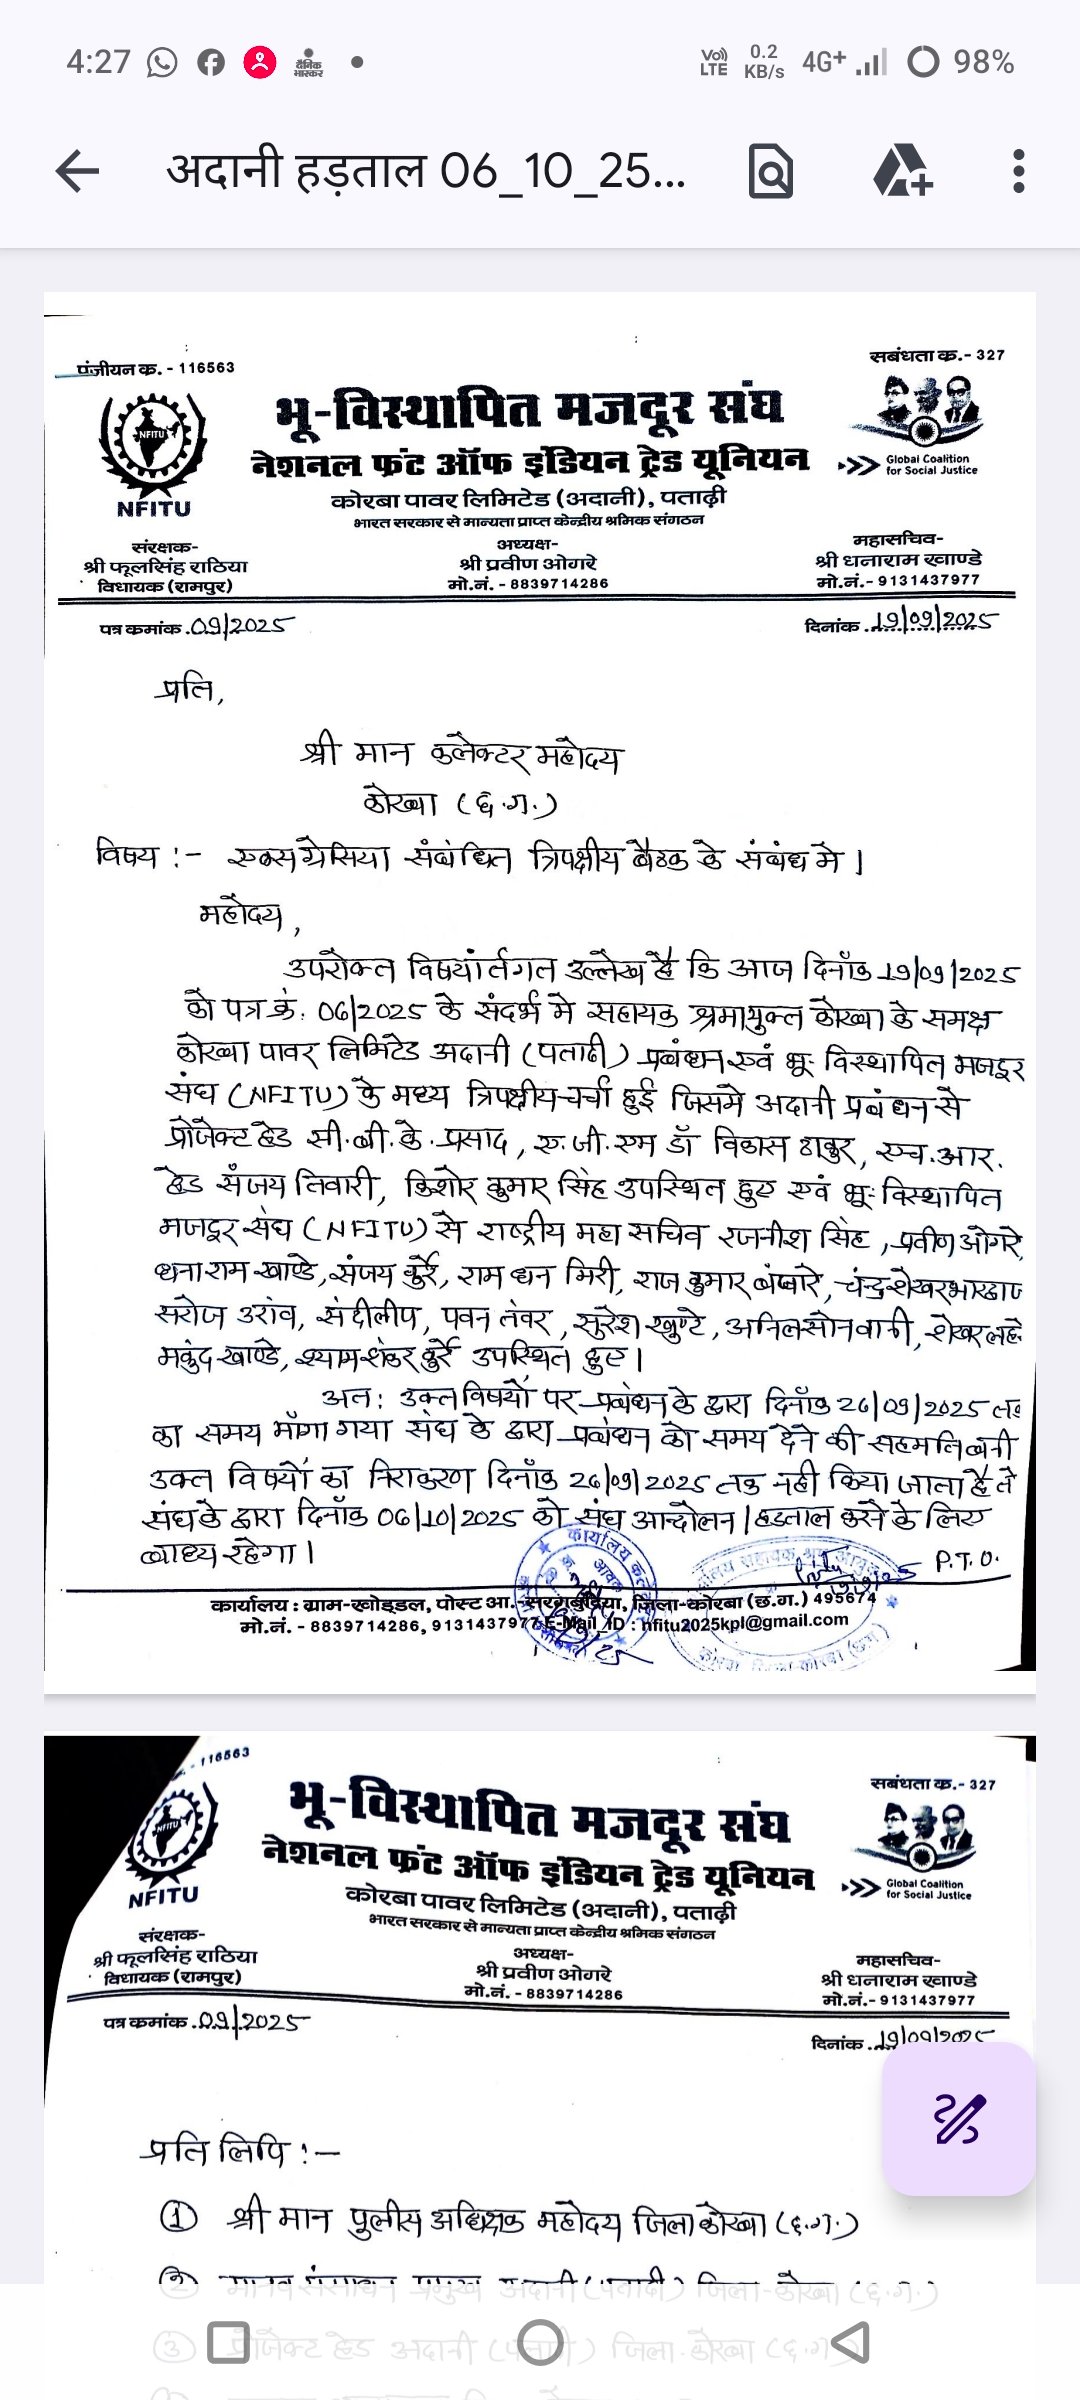 4:27
दैनिक भास्कर
Vo)) LTE 0.2 KB/s 4G+ 98%
अदानी हड़ताल 06_10_25...
पंजीयन क. - 116563
सबंधता क.- 327
भू-विस्थापित मजदूर संघ
नेशनल फ्रंट ऑफ इंडियन ट्रेड यूनियन
Global Coalition
for Social Justice
NFITU
NFITU
कोरबा पावर लिमिटेड (अदानी), पताढ़ी
भारत सरकार से मान्यता प्राप्त केन्द्रीय श्रमिक संगठन
संरक्षक-
श्री फूलसिंह राठिया
विधायक (रामपुर)
अध्यक्ष-
श्री प्रवीण ओगरे
मो.नं. - 8839714286
महासचिव-
श्री धनाराम खाण्डे
मो.नं.- 9131437977
पत्र कमांक .09/2025
दिनांक .19/09/2025
प्रति,
श्री मान कलेक्टर महोदय
कोरबा (छ.ग.)
विषय :- एक्सग्रेसिया संबंधित त्रिपक्षीय बैठक के संबंध मे।
महोदय,
उपरोक्त विषयांर्तगत उल्लेख है कि आज दिनाँक 19/09/2025
को पत्र क्रं. 06/2025 के संदर्भ मे सहायक श्रमायुक्त कोरबा के समक्ष
कोरबा पावर लिमिटेड अदानी (पताढी) प्रबंधन एवं भू-विस्थापित मजदूर
संघ (NFITU) के मध्य त्रिपक्षीय चर्चा हुई जिसमे अदानी प्रबंधन से
प्रोजेक्ट हेड सी.बी.के. प्रसाद, ए.जी.एम डॉ विकास ठाकुर, एच.आर.
हेड संजय तिवारी, किशोर कुमार सिंह उपस्थित हुए एवं भू-विस्थापित
मजदूर संघ (NFITU) से राष्ट्रीय महा सचिव रजनीश सिंह, प्रवीण ओगरे,
धनाराम खाण्डे, संजय कुर्रे, राम धन मिरी, राज कुमार बंजारे, चंद्रशेखर भारद्वाज
सरोज उरांव, संदीलीप, पवन तंवर, सुरेश खुण्टे, अनिल सोनवानी, शेखर लहरे
मकुंद खाण्डे, श्याम शंकर कुर्रे उपस्थित हुए।
अत: उक्त विषयों पर प्रबंधन के द्वारा दिनाँक 26/09/2025 तक
का समय माँगा गया संघ के द्वारा प्रबंधन को समय देने की सहमति बनी
उक्त विषयों का निराकरण दिनाँक 26/09/2025 तक नही किया जाता है तो
संघ के द्वारा दिनाँक 06/10/2025 को संघ आन्दोलन / हडताल करने के लिए
बाध्य रहेगा।
P.T.O.
कार्यालय : ग्राम-खोड्डल, पोस्ट आ.-सरगबुंदिया, जिला-कोरबा (छ.ग.) 495674
मो.नं. - 8839714286, 9131437977 E-Mail ID : nfitu2025kpl@gmail.com
- 116563
सबंधता क.- 327
भू-विस्थापित मजदूर संघ
नेशनल फ्रंट ऑफ इंडियन ट्रेड यूनियन
Global Coalition
for Social Justice
NFITU
NFITU
कोरबा पावर लिमिटेड (अदानी), पताढ़ी
भारत सरकार से मान्यता प्राप्त केन्द्रीय श्रमिक संगठन
संरक्षक-
श्री फूलसिंह राठिया
विधायक (रामपुर)
अध्यक्ष-
श्री प्रवीण ओगरे
मो.नं. - 8839714286
महासचिव-
श्री धनाराम खाण्डे
मो.नं.- 9131437977
पत्र कमांक .09/2025
दिनांक .19/09/2025
प्रति लिपि :-
① श्री मान पुलीस अधिक्षक महोदय जिला कोरबा (छ.ग.)
② मानव संसाधन प्रमुख अदानी (पताढी) जिला-कोरबा (छ.ग.)
③ प्रोजेक्ट हेड अदानी (पताढी) जिला-कोरबा (छ.ग.)